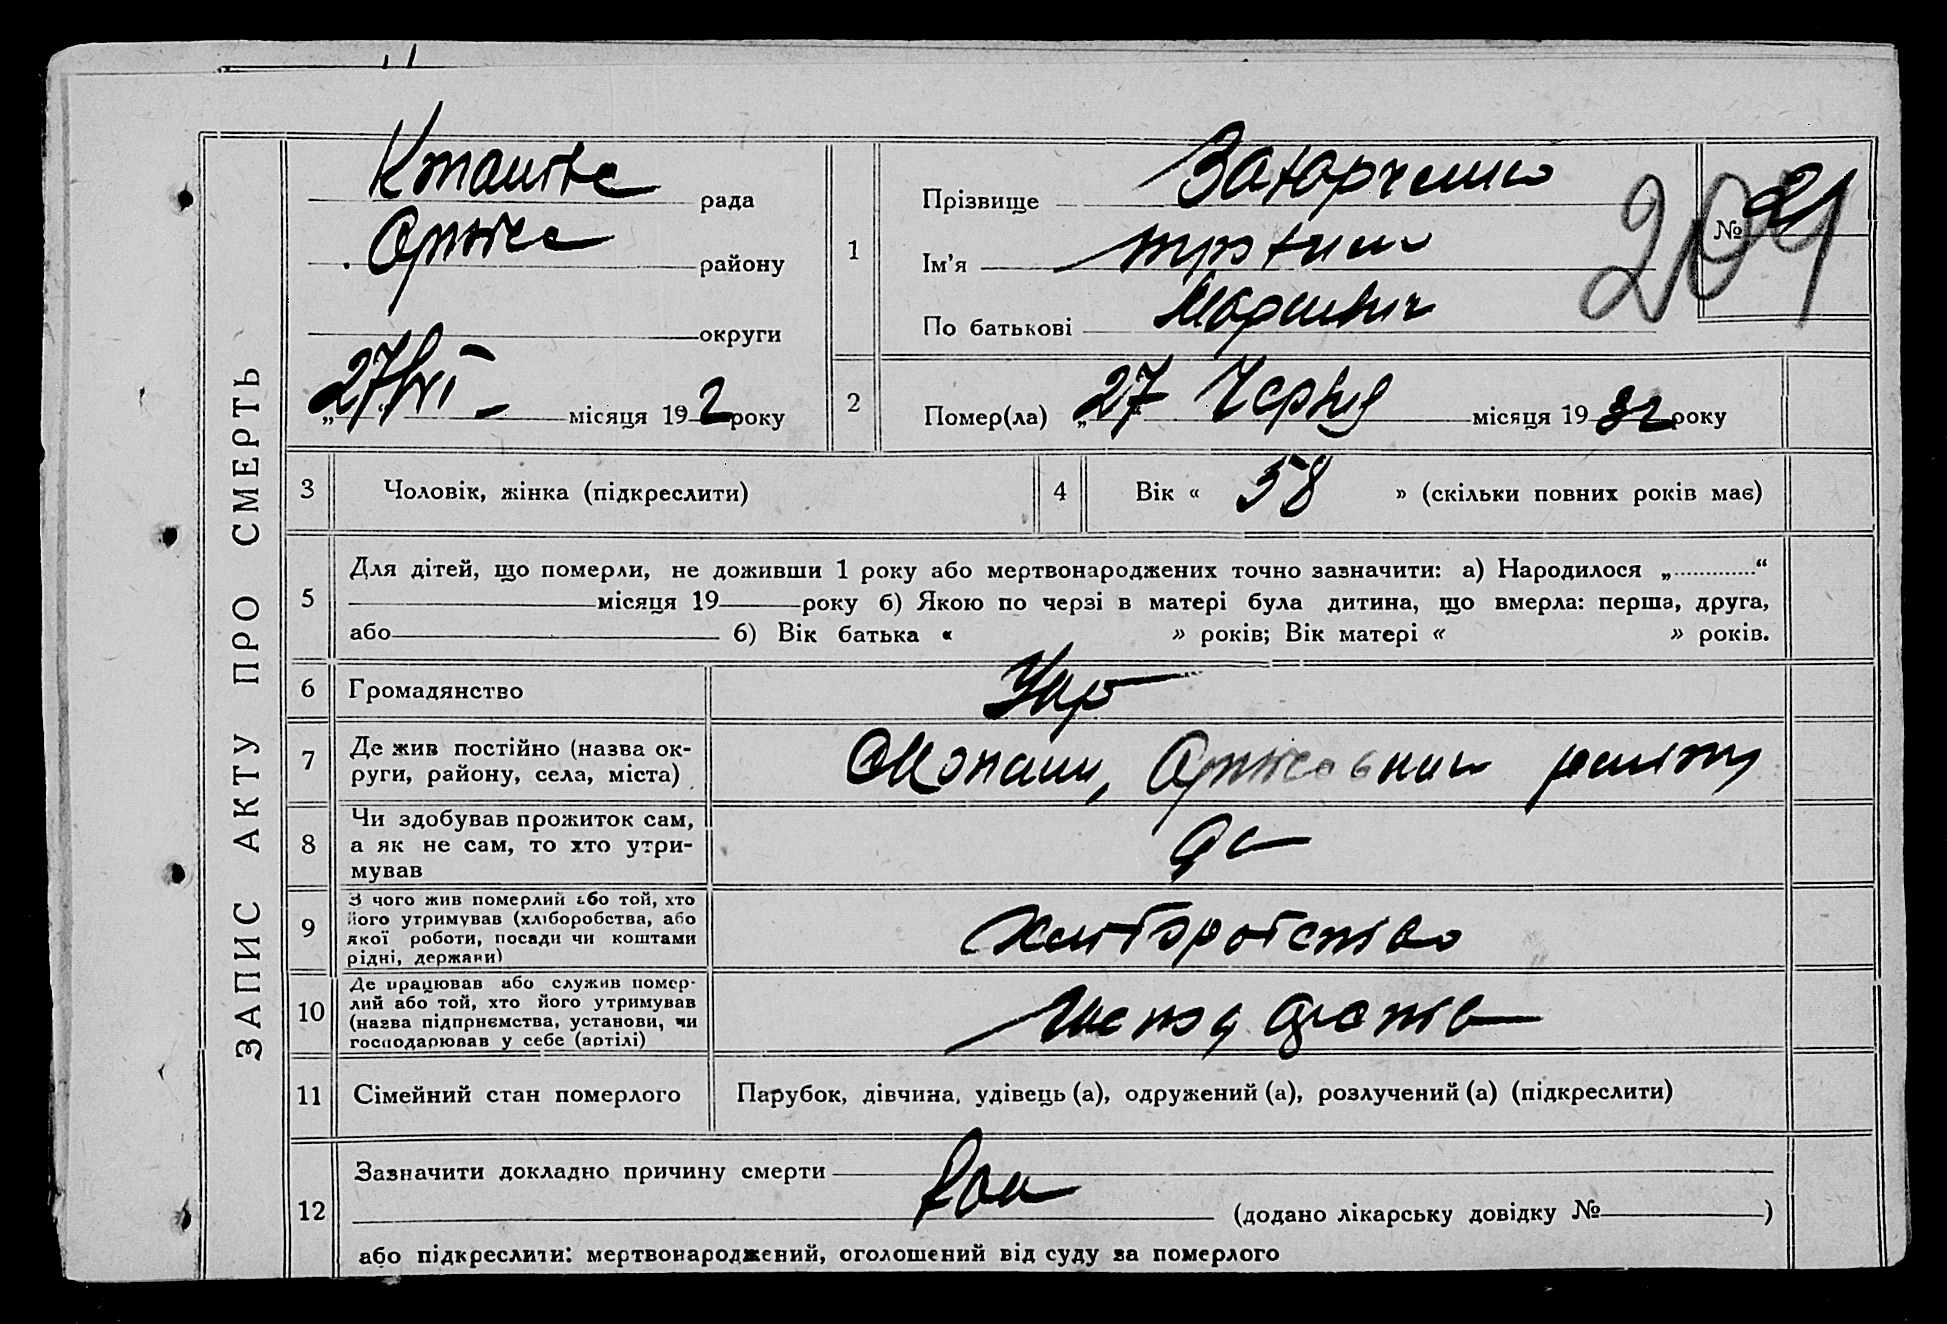 ЗАПИС АКТУ ПРО СМЕРТЬ
рада
району
округи
"27/VI - місяця 192 року
1
Прізвище Захарченко
Ім'я
По батькові
№ 21
204
2
Помер(ла) „27 Червня місяця 19 32 року
3 Чоловік, жінка (підкреслити)
4 Вік « 58 » (скільки повних років має)
5
Для дітей, що померли, не доживши 1 року або мертвонароджених точно зазначити: а) Народилося „............“
місяця 19 року б) Якою по черзі в матері була дитина, що вмерла: перша, друга,
або б) Вік батька « » років; Вік матері « » років.
6 Громадянство Укр
7
Де жив постійно (назва ок-
руги, району, села, міста)
8
Чи здобував прожиток сам,
а як не сам, то хто утри-
мував
9
З чого жив померлий або той, хто
його утримував (хліборобства, або
якої роботи, посади чи коштами
рідні, держави)
Хліборобство
10
Де працював або служив помер-
лий або той, хто його утримував
(назва підприємства, установи, чи
господарював у себе (артілі)
11 Сімейний стан померлого
Парубок, дівчина, удівець (а), одружений (а), розлучений (а) (підкреслити)
12
Зазначити докладно причину смерти
(додано лікарську довідку № )
або підкреслити: мертвонароджений, оголошений від суду за померлого